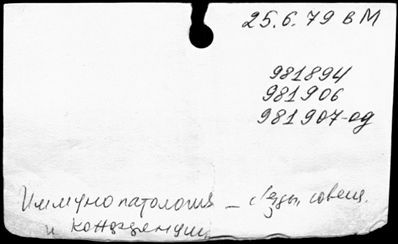 25.6.79 вМ
981894
981906
981907-од
Иммунопатология – съезды, совещ.
и конференции